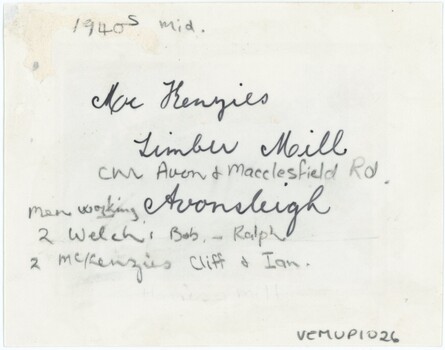 1940s mid.
Mc Kenzies
Timber Mill
cnr Avon & Macclesfield Rd.
Avonsleigh
men working
2 Welch's Bob - Ralph
2 McKenzies Cliff & Ian.
VEMUP1026